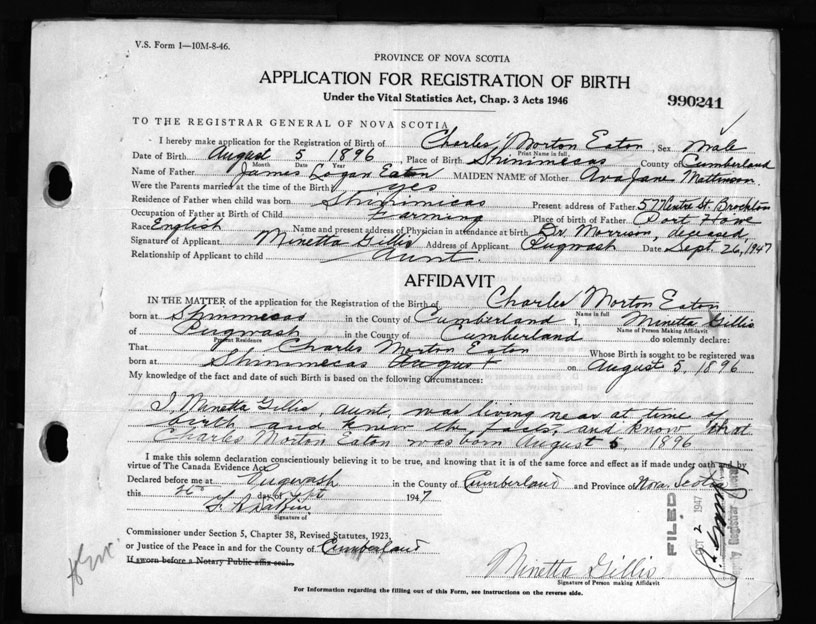 V.S. Form 1—10M-8-46.
PROVINCE OF NOVA SCOTIA
APPLICATION FOR REGISTRATION OF BIRTH
Under the Vital Statistics Act, Chap. 3 Acts 1946
990241
TO THE REGISTRAR GENERAL OF NOVA SCOTIA
I hereby make application for the Registration of Birth of Charles Morton Eaton, Sex Male
Print Name in full
Date of Birth August 5 1896, Place of Birth Shinimecas County of Cumberland
Month Day Year
Name of Father James Logan Eaton MAIDEN NAME of Mother Ava Jane Mattinson.
Were the Parents married at time of the Birth yes
Residence of Father when child was born Shinimicas Present address of Father 577 Centre St. Brockton
Occupation of Father at Birth of Child Farming Place of birth of Father Port Howe
Race English Name and present address of Physician in attendance at birth Dr. Morrison, deceased,
Signature of Applicant Minetta Gillis Address of Applicant Pugwash Date Sept. 26, 1947
Relationship of Applicant to child Aunt.
AFFIDAVIT
IN THE MATTER of the application for the Registration of the Birth of Charles Morton Eaton
Name in full
born at Shinimecas in the County of Cumberland I, Minetta Gillis
Name of Person Making Affidavit
of Pugwash in the County of Cumberland do solemnly declare:
Present Residence
That Charles Morton Eaton Whose Birth is sought to be registered was
born at Shinimecas August on August 5, 1896
My knowledge of the fact and date of such Birth is based on the following Circumstances:
I, Minetta Gillis, aunt, was living near at time of
birth and knew the facts, and know that
Charles Morton Eaton was born August 5, 1896
I make this solemn declaration conscientiously believing it to be true, and knowing that it is of the same force and effect as if made under oath and by
virtue of The Canada Evidence Act.
Declared before me at Pugwash in the County of Cumberland and Province of Nova Scotia
this day of Sept 1947
Signature of
Commissioner under Section 5, Chapter 38, Revised Statutes, 1923,
or Justice of the Peace in and for the County of Cumberland
If sworn before a Notary Public affix seal.
FILED
OCT 2 1947
Deputy Registrar
Minetta Gillis
Signature of Person making Affidavit
For Information regarding the filling out of this Form, see Instructions on the reverse side.